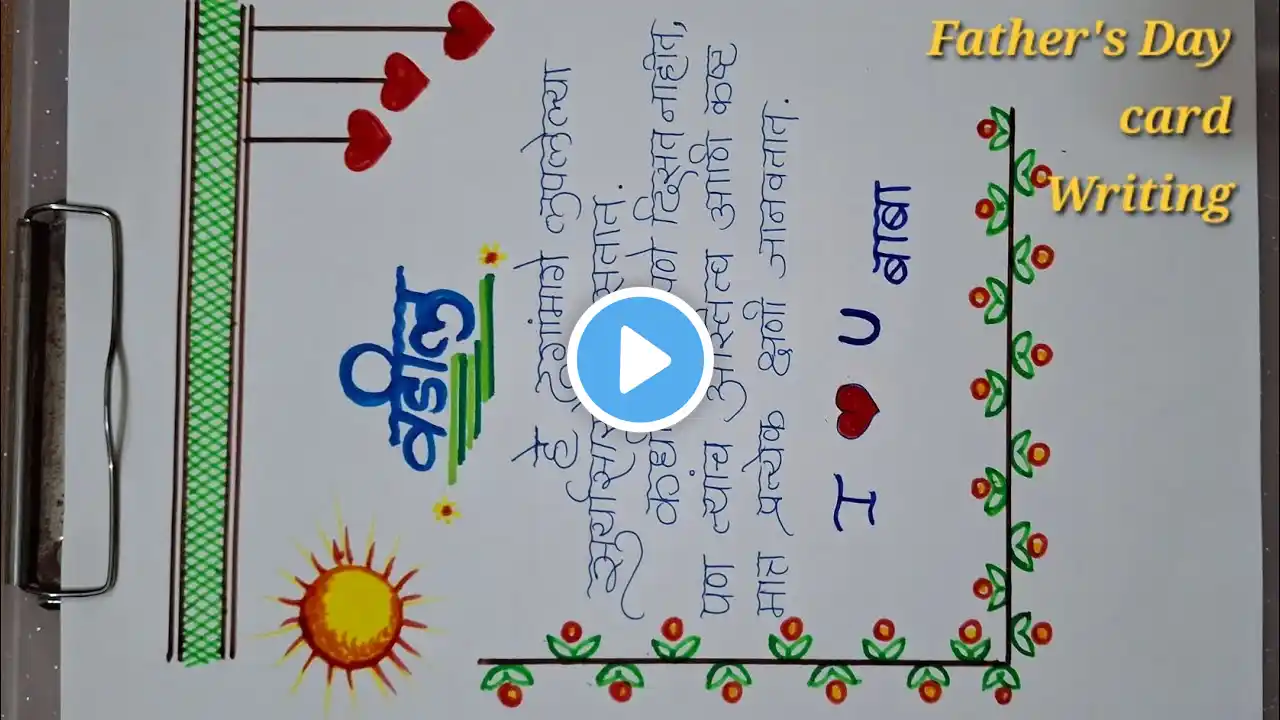 Father's Day
card
Writing
वडील
हे ढगांमागे लुपलेल्या
दिसत नाहीत,
पण त्यांचं अस्तित्व आणि कष्ट
मात्र प्रत्येक क्षणी जानवतात.
I ❤ U बाबा